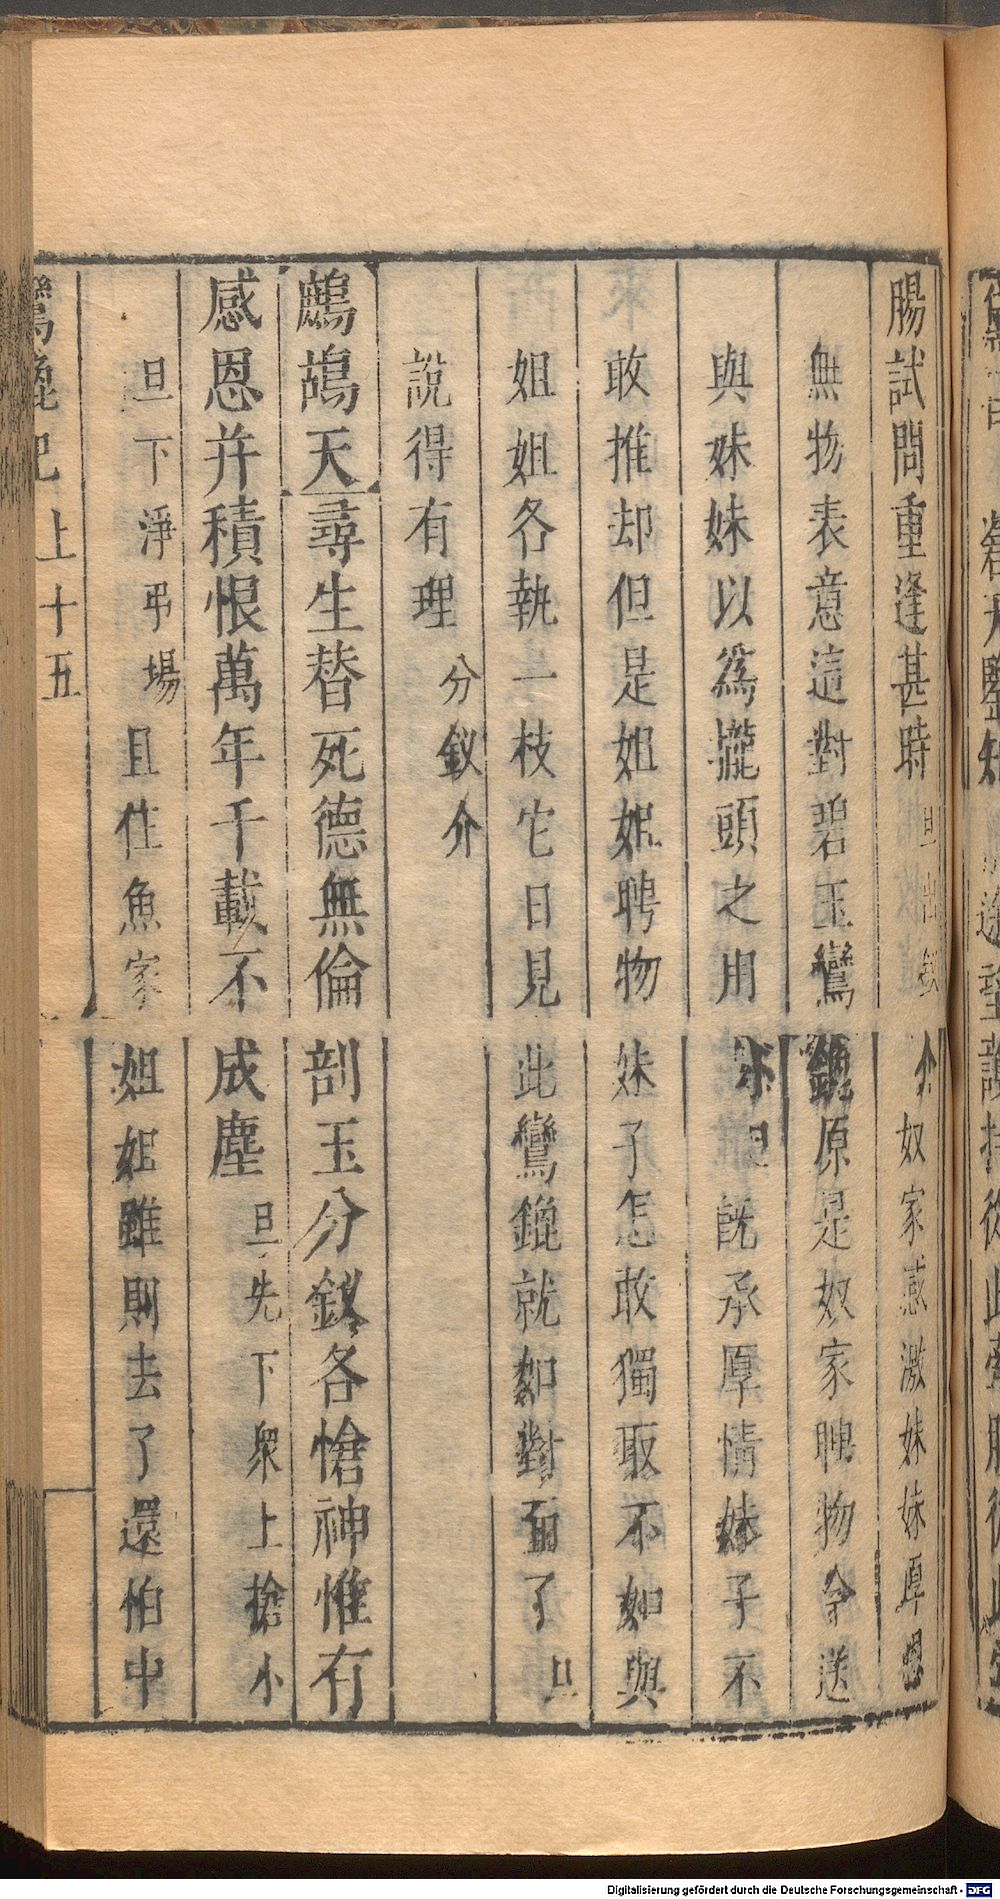 腸試問重逢甚時旦出釵介奴家感激妹妹厚恩
無物表意這對碧玉鸞鎞原是奴家聘物今送
與妹妹以爲攏頭之用小旦旣承厚情妹子不
敢推却但是姐姐聘物妹子怎敢獨取不如與
姐姐各執一枝它日見此鸞鎞就如對面了旦
說得有理分釵介
鷓鴣天尋生替死德無倫剖玉分釵各愴神惟有
感恩并積恨萬年千載不成塵旦先下衆上搶小
旦下淨弔場且住魚家姐姐雖則去了還怕中
鸞鎞記上十五
Digitalisierung gefördert durch die Deutsche Forschungsgemeinschaft - DFG